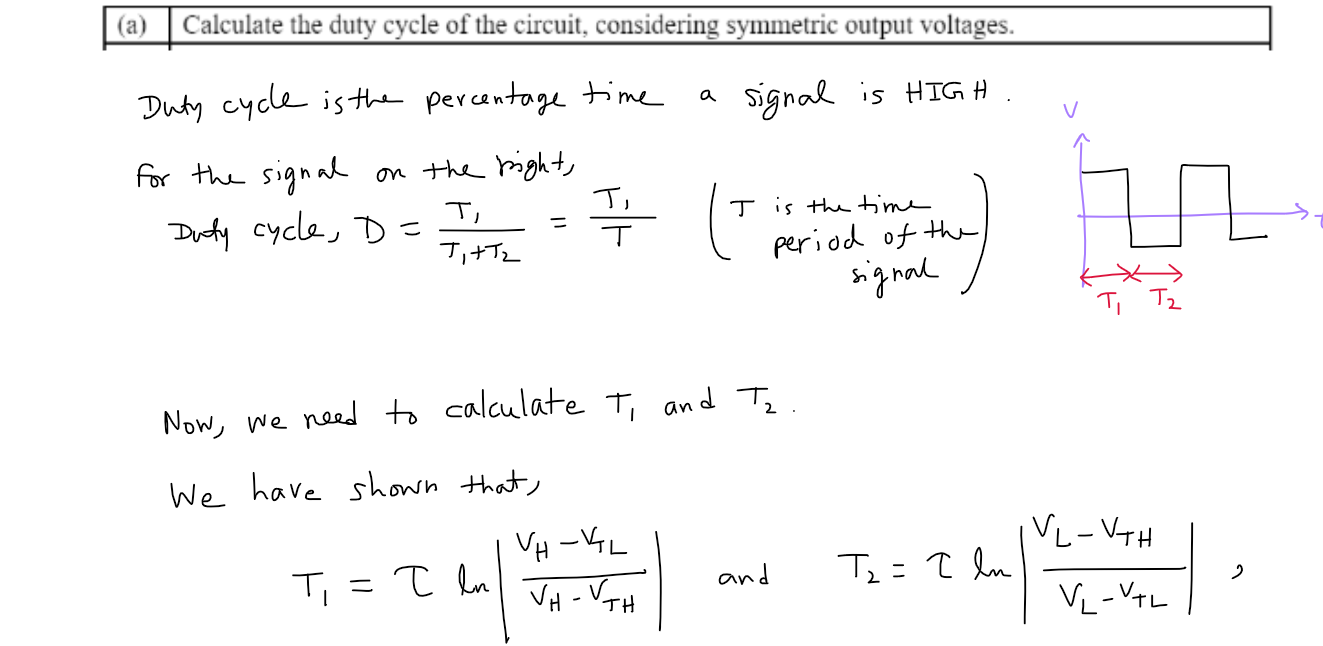 (a) Calculate the duty cycle of the circuit, considering symmetric output voltages.
Duty cycle is the percentage time a signal is HIGH.
V
For the signal on the right,
Duty cycle, D = T₁/(T₁+T₂) = T₁/T (T is the time period of the signal)
T₁ T₂
Now, we need to calculate T₁ and T₂.
We have shown that,
T₁ = τ ln |(V_H - V_TL)/(V_H - V_TH)| and T₂ = τ ln |(V_L - V_TH)/(V_L - V_TL)|,